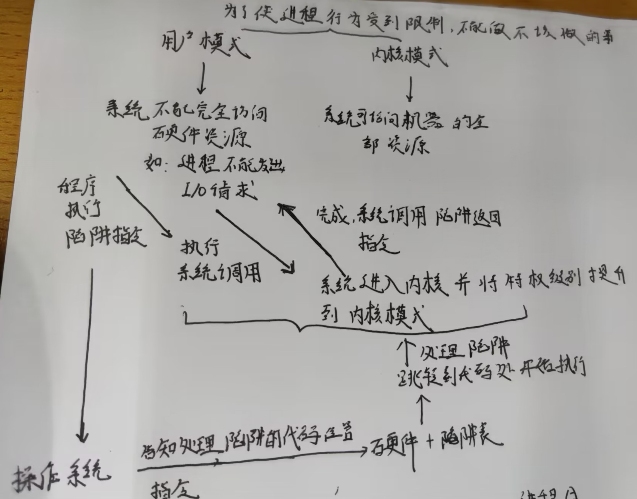 为了使进程行为受到限制,不能做不该做的事
用户模式
内核模式
系统不能完全访问
硬件资源
如:进程不能发出
I/O请求
系统可访问机器的全
部资源
程序
执行
陷阱指令
执行
系统调用
完成,系统调用陷阱返回
指令
系统进入内核并将特权级别提升
到内核模式
处理陷阱
跳转到代码处开始执行
操作系统
告知处理陷阱的代码位置
指令
硬件+陷阱表